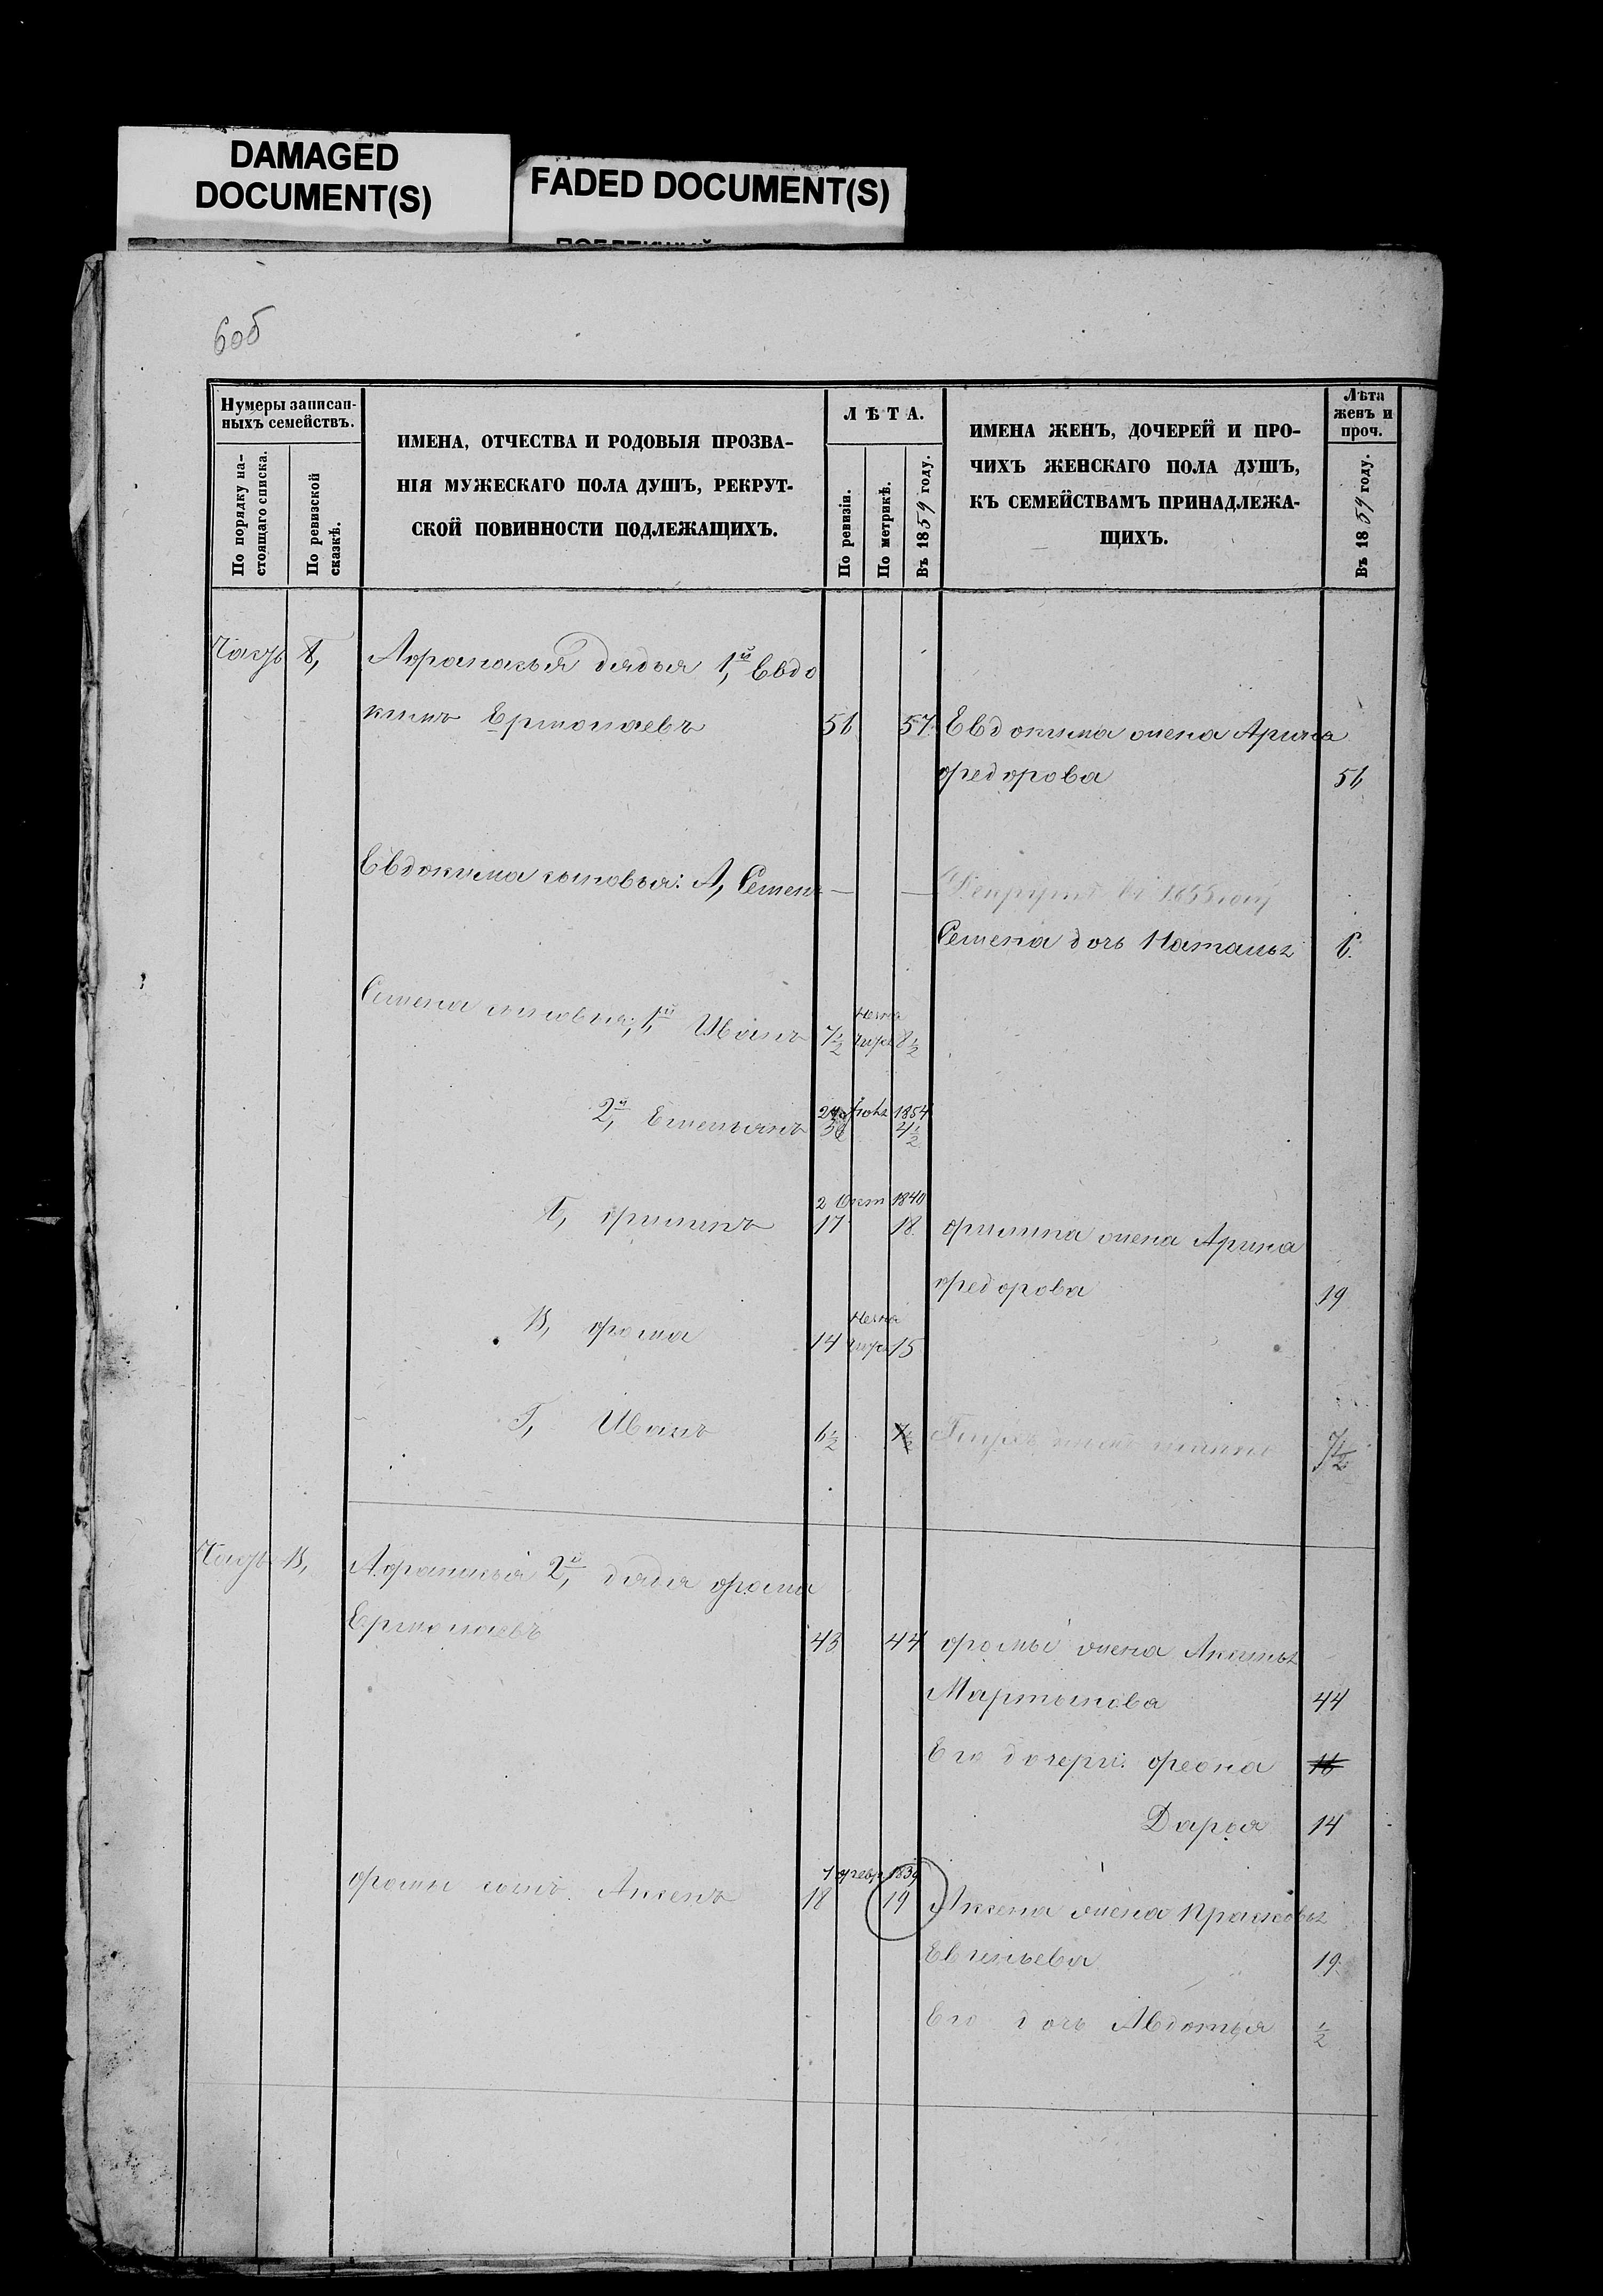 DAMAGED
DOCUMENT(S)
FADED DOCUMENT(S)
60б
Нумеры записан-
ныхъ семействъ.
По порядку на-
стоящаго списка.
По ревизской
сказкѣ.
ИМЕНА, ОТЧЕСТВА И РОДОВЫЯ ПРОЗВА-
НІЯ МУЖЕСКАГО ПОЛА ДУШЪ, РЕКРУТ-
СКОЙ ПОВИННОСТИ ПОДЛЕЖАЩИХЪ.
ЛѢТА.
По ревизіи.
По метрикѣ.
Въ 1859 году.
ИМЕНА ЖЕНЪ, ДОЧЕРЕЙ И ПРО-
ЧИХЪ ЖЕНСКАГО ПОЛА ДУШЪ,
КЪ СЕМЕЙСТВАМЪ ПРИНАДЛЕЖА-
ЩИХЪ.
Лѣта
женъ и
проч.
Въ 1859 году.
Часть Б, дядья 1й, Евдо
кимъ Ермолаевъ 57 Евдокима жена Арина
Федорова
Евдокима сыновья: А, Семенъ — —
Семена дочь Наталья
Семена сыновья: 1й, Иванъ 7½ 8½
2й, Емельянъ 1854
4½
2 Окт 1840
Филипъ 17 18 Филипа жена Арина
Федорова 19
В, Фома 14 15
Г, Иванъ 6½ 7½
7½
Часть В, 2й, дядя Фома
Ермолаевъ 43 44 Фомы жена Аксинья
Мартынова 44
Его дочери: Феона 16
Дарья 14
1839
Фомы сынъ Аксенъ 18 19 Аксена жена Прасковья
19
Его дочь Авдотья ½